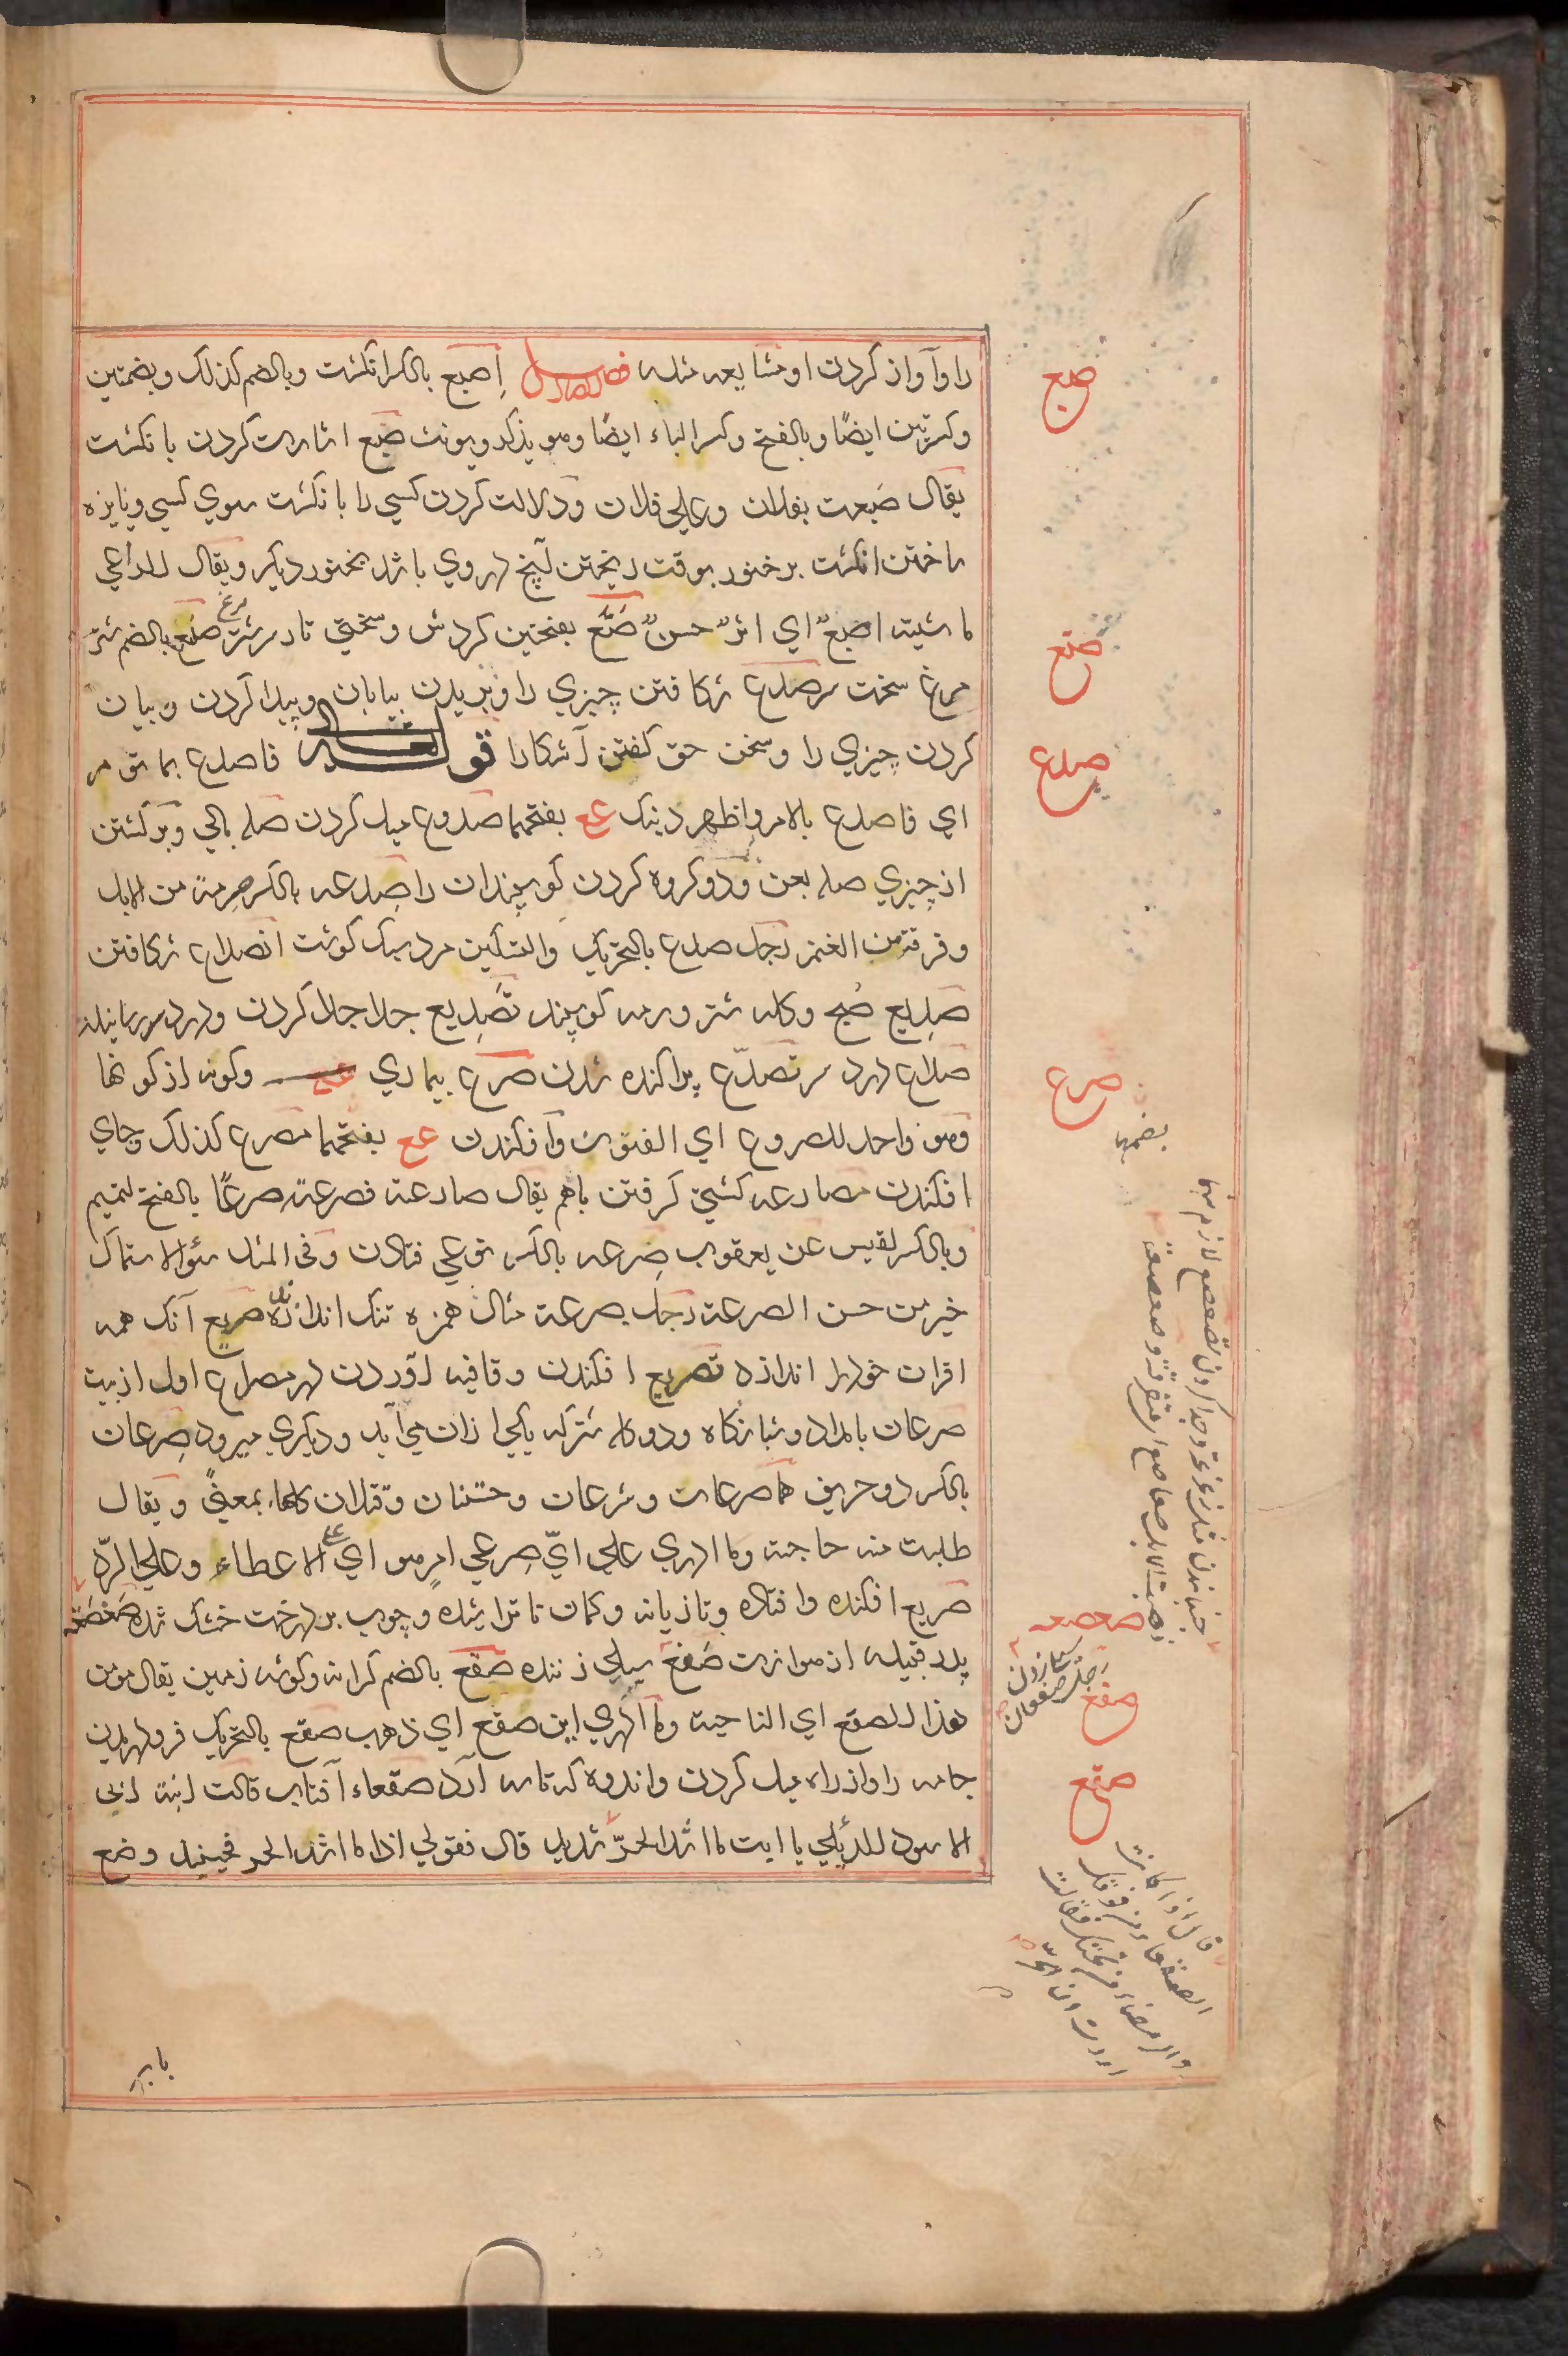 را وآواز کردن او مشایعه مثله فصل الصاد اِصبع بالکسر انکشت وبالضم کذلک وبضمتین
وکسرتین ایضًا وبالفتح وکسر الباء ایضًا وهو یذکر ویونث صبع اشارت کردن بانکشت
یقال صَبعت بفلان وعلی فلان ودلالت کردن کسی را بانکشت سوی کسی ونایزه
ساختن انکشت بر خنور بوقت ریختن آنچ دروی باشد بخنور دیکر ویقال للراعی
ما شیته اصبعٌ ای اثرٌ حسنٌ صَتَع بفتحتین کردش وسختی تا در شتر مرغ صنتع بالضم شتر
مرغ سخت سر صدع شکافتن چیزی را وبریدن بیابان وپیدا کردن وبیان
کردن چیزی را وسخن حق کفتن آشکارا قوله تعالی فاصدع بما تؤمر
ای فاصدع بالامر واظهر دینک عع بفتحهما صدوع میل کردن صله بالی وبرکشتن
از چیزی صله بعن ودو کروه کردن کوسپندان را صِدعه بالکسر صرمة من الابل
وفرقة من الغنم رجل صدع بالتحریک والتسکین مرد سبک کوشت انصداع شکافتن
صَدِیع صُبح وکله شتر ورمه کوسپند تَصدِیع جدا جدا کردن ودرد سر رسانیدن
صداع درد سر تصدّع پراکنده شدن صرع بیماری وکونه از کونها
وهو واحد للصروع ای الفنون وافکندن عع بفتحهما مصرع کذلک وجای
افکندن مصارعه کشتی کرفتن باهم یقال صارعته فصرعته صرعًا بالفتح لتمیم
وبالکسر لقیس عن یعقوب صِرعه بالکسر نوعی فتادن وفی المثل سوء الاستماک
خیر من حسن الصرعة رجل صرعة مثال همزه تنک اندازنده صریع آنک همه
اقران خود را اندازد تصریع افکندن وقافیه آوردن در مصراع اول از بیت
صرعان بامداد وشبانکاه ودو کله شتر که یکی ازان می آید ودیکری میرود صِرعان
بالکسر دو حریف هما صرعان وشرعان وحتنان وقتلان کلها بمعنیً ویقال
طلبت منه حاجته وما ادری علی ایّ صِرعی امرِ هو ای علی الاعطاء وعلی الردّ
صریع افکنده وافتاده وتازیانه وکمان ناتراشیده وچوب بر درخت خشک شده صَعصَعة
پدر قبیله از هوازن صَفعَ سیلی زننده صقع بالضم کرانه وکوشه زمین یقال هو من
هذا الصقع ای الناحیة وما ادری این صقع ای ذهب صقع بالتحریک فرو دریدن
جامه را واز راه میل کردن واندوه که تاسه آرد صقعاء آفتاب قالت ابنة ابی
الاسود للدیلی یا ابت ما اشد الحرّ شدید قال فقولی اذًا ما اشد الحر فحینئذ وضع
صبع
صتع
صدع
صرع
بضمه
صعصعه
صفع
صقع
قال اذا کانت
الصقعاء من فوقک
والرمضاء من تحتک فقالت
اردت ان الحرّ
باب